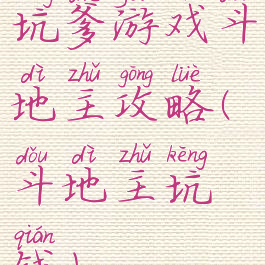 坑爹游戏斗
dì zhǔ gōng lüè
地主攻略(
dǒu dì zhǔ kēng
斗地主坑
qián
钱)